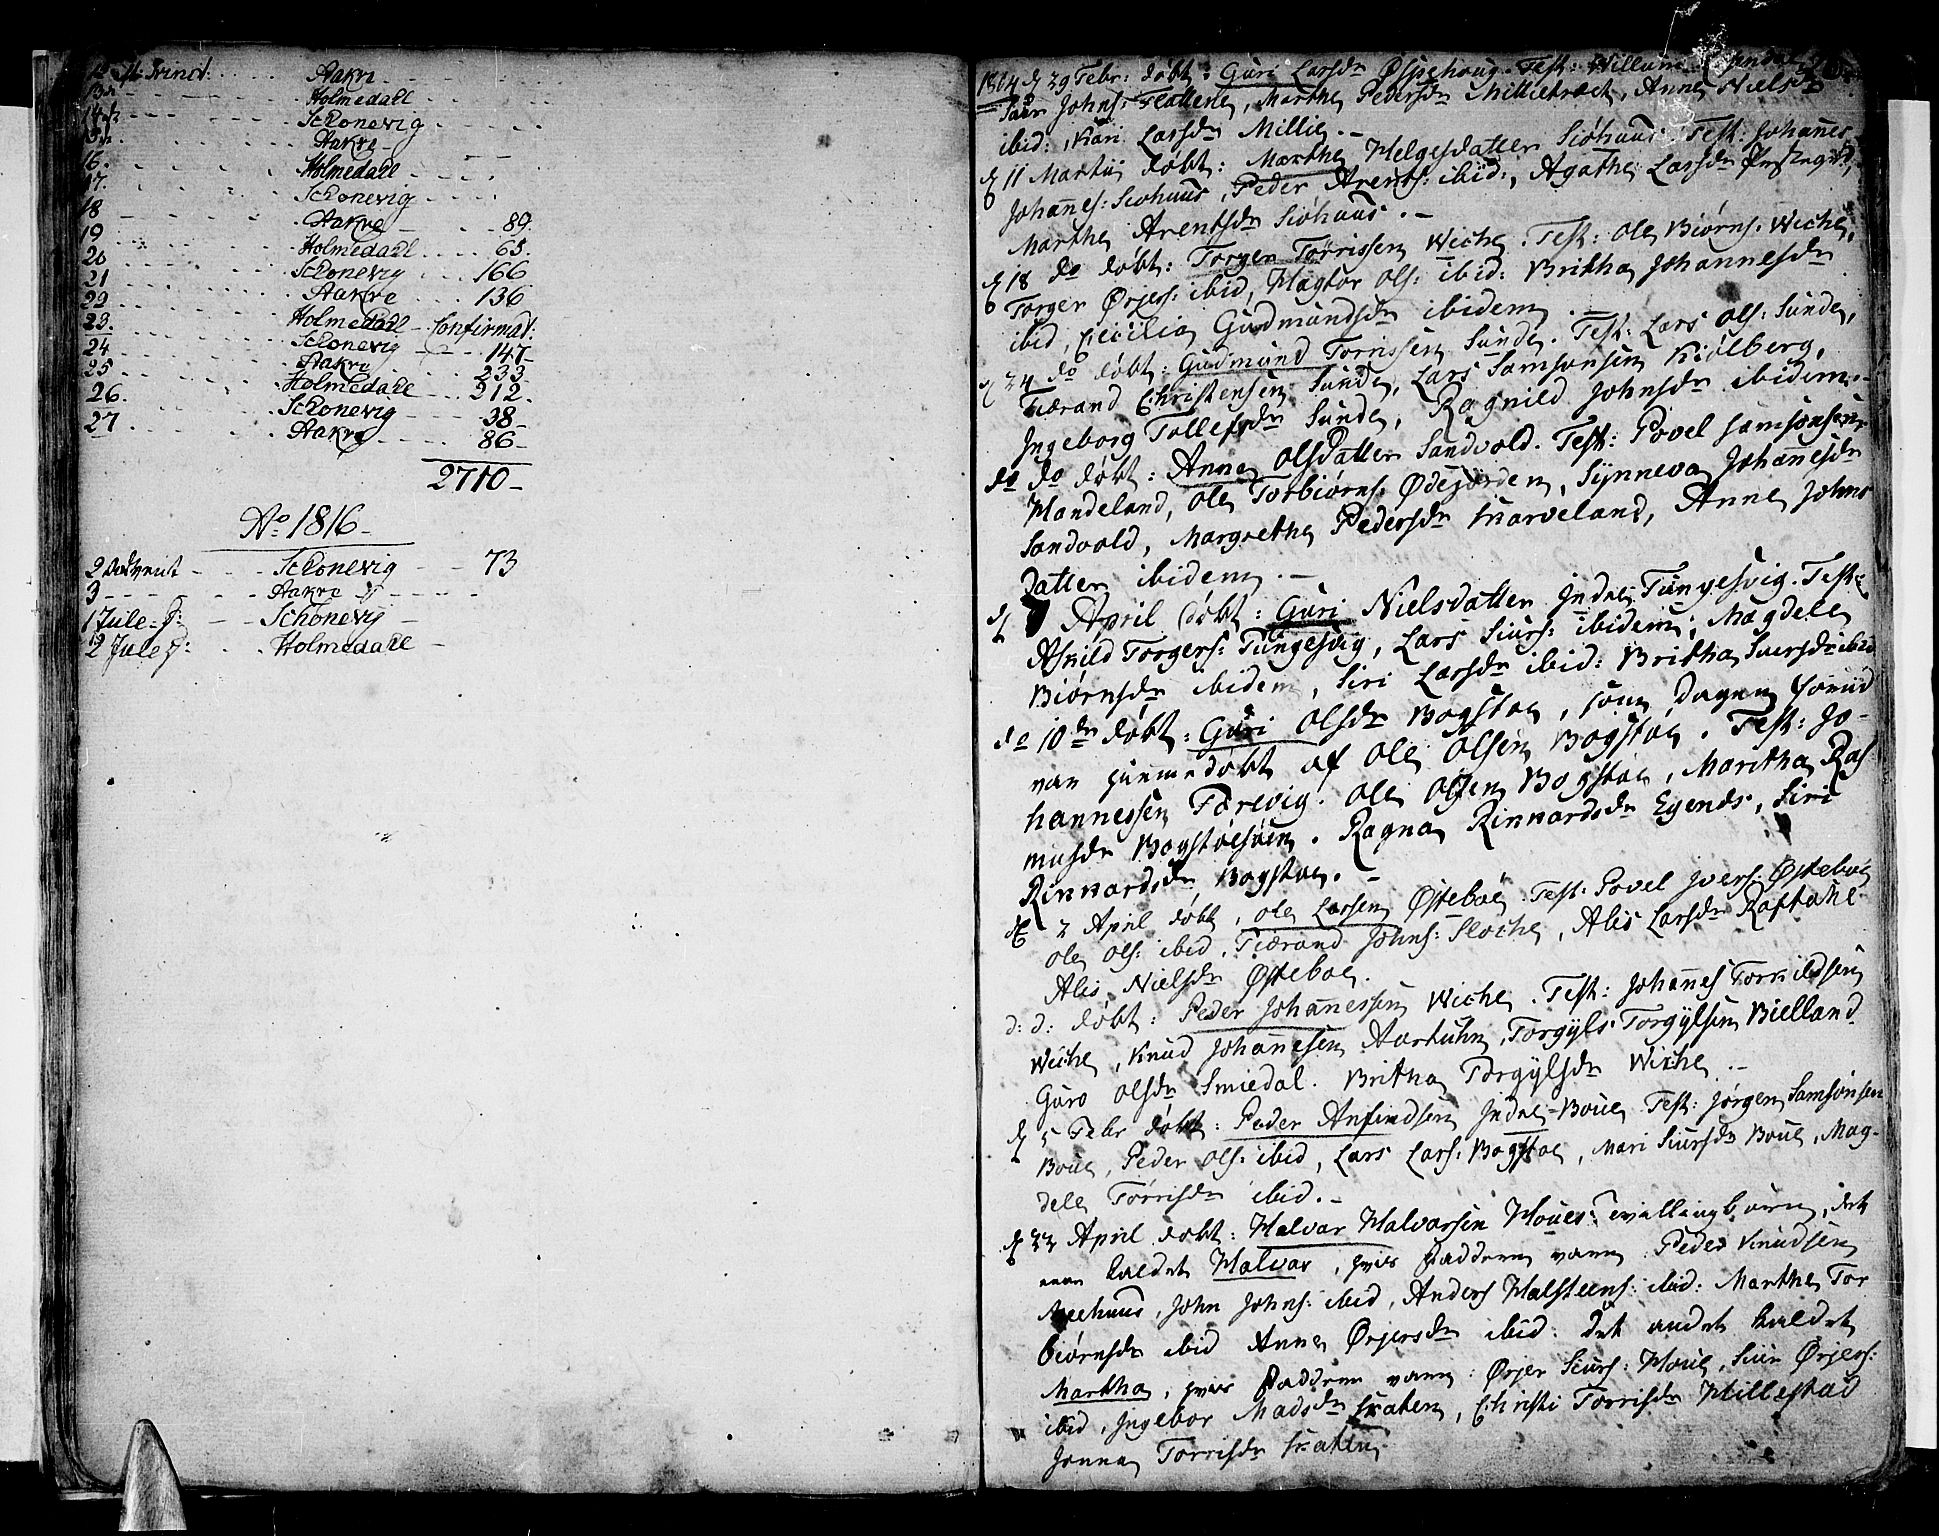 12 M: Trinit: Aakre
13de Holmedall
14de Schonevig
15de Aakre
16. Holmedall
17. Schonevig
18 Aakre 89.
19 Holmedall 65.
20 Schonevig 166
21 Aakre 136
22 Holmedall Confirmat:
23. Schonevig 147
24 Aakre 233
25 Holmedall 212.
26. Schonevig 38
27 Aakre 86
2710
Ao 1816
2 Advent Schonevig 73
3 Aakre
1 Jule d: Schonevig
2 Jule d: Holmedall
1804 d 29 Febr: døbt: Guri Larsdr Øspehoug. Test: Willum
Johns: Flatten, Marthe Pedersdr Millietræet, Anne Nielsdr
ibid:, Kari Larsdr Millie.
d 11 Martii døbt: Marthe Helgesdatter Siøhuus. Test: Johannes
Johannes: Siøhuus, Peder Arents: ibid:, Agathe Larsdr
Marthe Arentsdr Siøhuus.
d 18 do døbt: Torger Tørrissen Wiche. Test: Ole Biørns: Wiche,
Torger Ørjers: ibid, Hagtor Ols: ibid: Britha Johannesdr
ibid, Cecilia Gudmundsdr ibidem
d 24 do døbt: Gudmund Torrissen Sunde. Test: Lars Ols: Sunde,
Tiærand Christensen Sunde, Lars Samsonsen Kiølberg,
Ingeborg Tollefsdr Sunde, Ragnild Johnsdr ibidem.
do do døbt: Anne Olsdatter Sandvold. Test: Povel Samsonsen
Handeland, Ole Torbiørns: Ødejorden, Synneva Johanesdr
Sandvold, Margrethe Pedersdr Skarveland, Anne Johns
datter ibidem.
d April døbt: Guri Nielsdatter Indre Tungesvig. Test:
Askild Torgers: Tungesvig, Lars Siurs: ibidem, Magdele
Biørnsdr ibidem, Siri Larsdr ibid: Britha Iversdr ibid
do 10de døbt: Guri Olsdr Bogstøe, som Dagen forud
var hiemmedøbt af Ole Olsen Bogstøe. Test: Jo-
hannessen Tærevig. Ole Olsen Bogstøe, Maritha Ras
musdr Bogstøesøen. Ragna Rinnardsdr Egends, Siri
Rinnardsdr Bogstøe.
d 2 April døbt, Ole Larsen Østebøe. Test: Povel Ivers: Østebøe
Ole Ols: ibid. Tiærand Johns: Floche, Alis Larsdr Raftahl
Alis Nielsdr Østeboe.
d: d: døbt: Peder Johannessen Wiche. Test: Johannes Torkildsen
Wiche, Knud Johanesen Aartuhn, Torgyls Torgylsen Bielland
Guro Olsdr Smiedal. Britha Torgylsdr Wiche.
d 5 Febr døbt: Peder Anfindsen Indre-Boue Test: Jørgen Samsonsen
Boue, Peder Ols: ibid, Lars Lars: Bogstøe, Mari Siursdr Boue, Mag-
dele Tørrisdr ibid.
d 22 April døbt: Halvar Halvorsen Houes Tvillingbørn, det
ene kaldet Halvar, hvis Faddere vare: Peder Knudsen
Neehuus, John Johns: ibid, Anders Halsteens: ibid: Marthe Tor
biørnsdr ibid Anne Ørjersdr ibid: det andet kaldet
Martha, hvis Faddere vare: Ørjer Siurs: Houe, Siur Ørjers:
ibid, Ingebor Madsdr Skaten, Christi Torrisdr Hillestad
Jonna Torrisdr Skaten.